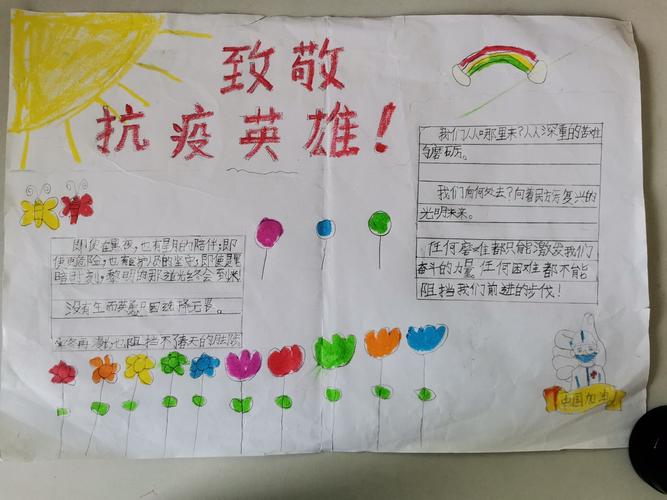 致敬
抗疫英雄！
我们从哪里来？从深重的苦难
与磨砺。
我们向何处去？向着民族复兴的
光明未来。
任何磨难都只能激发我们
奋斗的力量，任何困难都不能
阻挡我们前进的步伐！
即使是黑夜，也有星月的陪伴；即
使是危险，也有的坚守；即使是黑
暗时刻，黎明的那道光终会到来！
没有生而英勇，只因选择无畏。
寒冬再漫，也阻挡不了春天的脚步
中国加油